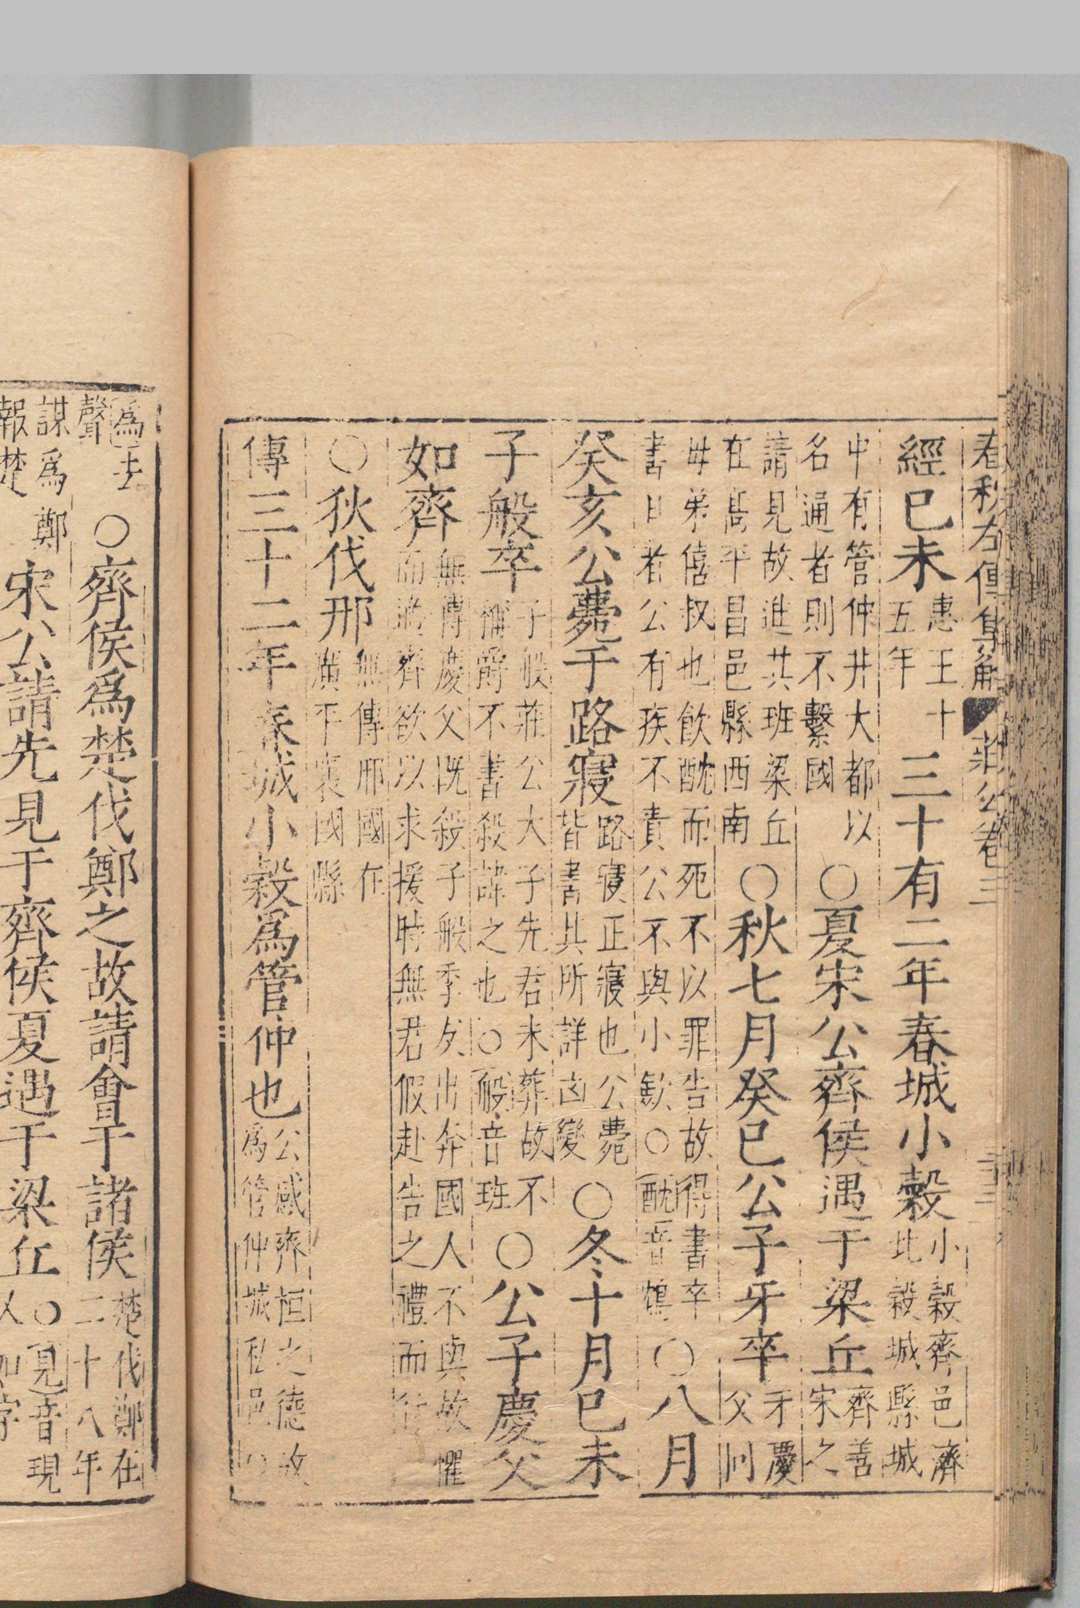 春秋左傳集解 莊公卷三 三十二
經巳未惠王十五年三十有二年春城小穀小穀齊邑濟北穀城縣城
中有管仲井大都以名通者則不繫國○夏宋公齊侯遇于梁丘齊善宋之
請見故進其班梁丘在高平昌邑縣西南○秋七月癸巳公子牙卒牙慶父同
母弟僖叔也飲酖而死不以罪告故得書卒書日者公有疾不責公不與小斂○酖音鴆○八月
癸亥公薨于路寢路寢正寢也公薨皆書其所詳凶變○冬十月巳未
子般卒子般莊公大子先君未葬故不稱爵不書殺諱之也○般音班○公子慶父
如齊無傳慶父既殺子般季友出奔國人不與故懼而適齊欲以求援時無君假赴告之禮而行
○狄伐邢無傳邢國在廣平襄國縣
傳三十二年春城小穀爲管仲也公感齊桓之德故爲管仲城私邑○
爲去聲○齊侯爲楚伐鄭之故請會于諸侯楚伐鄭在二十八年
謀爲鄭報楚宋公請先見于齊侯夏遇于梁丘○見音現又如字